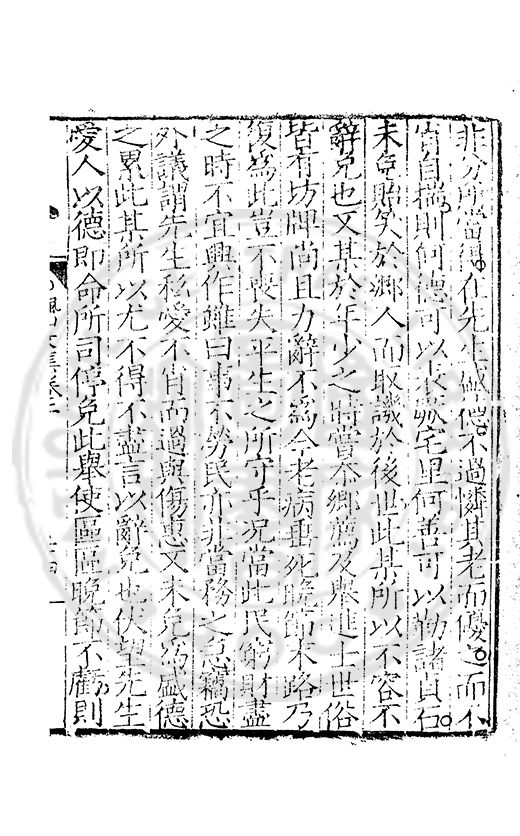 非分所當得在先生盛德不過憐其老而優之而小
宵自揣則何德可以表厥宅里何善可以勒諸貞石
未免貽笑於鄉人而取譏於後世此某所以不容不
辭免也又某於年少之時嘗忝鄉薦及舉進士世俗
皆有坊牌尚且力辭不爲今老病垂死晚節末路乃
復爲此豈不喪失平生之所守乎况當此民窮財盡
之時不宜興作雖曰事不勞民亦非當務之急竊恐
外議謂先生私愛不肖而過與傷惠又未免爲盛德
之累此某所以尤不得不盡言以辭免也伏望先生
愛人以德即命所司停免此舉使區區晚節不虧則